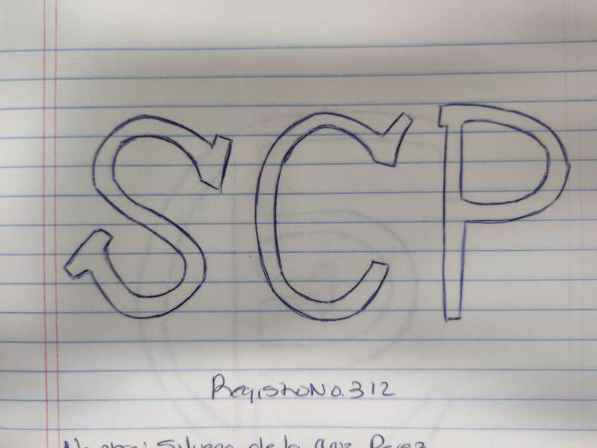 SCP
Registro No. 312
Nombre: de la Perez